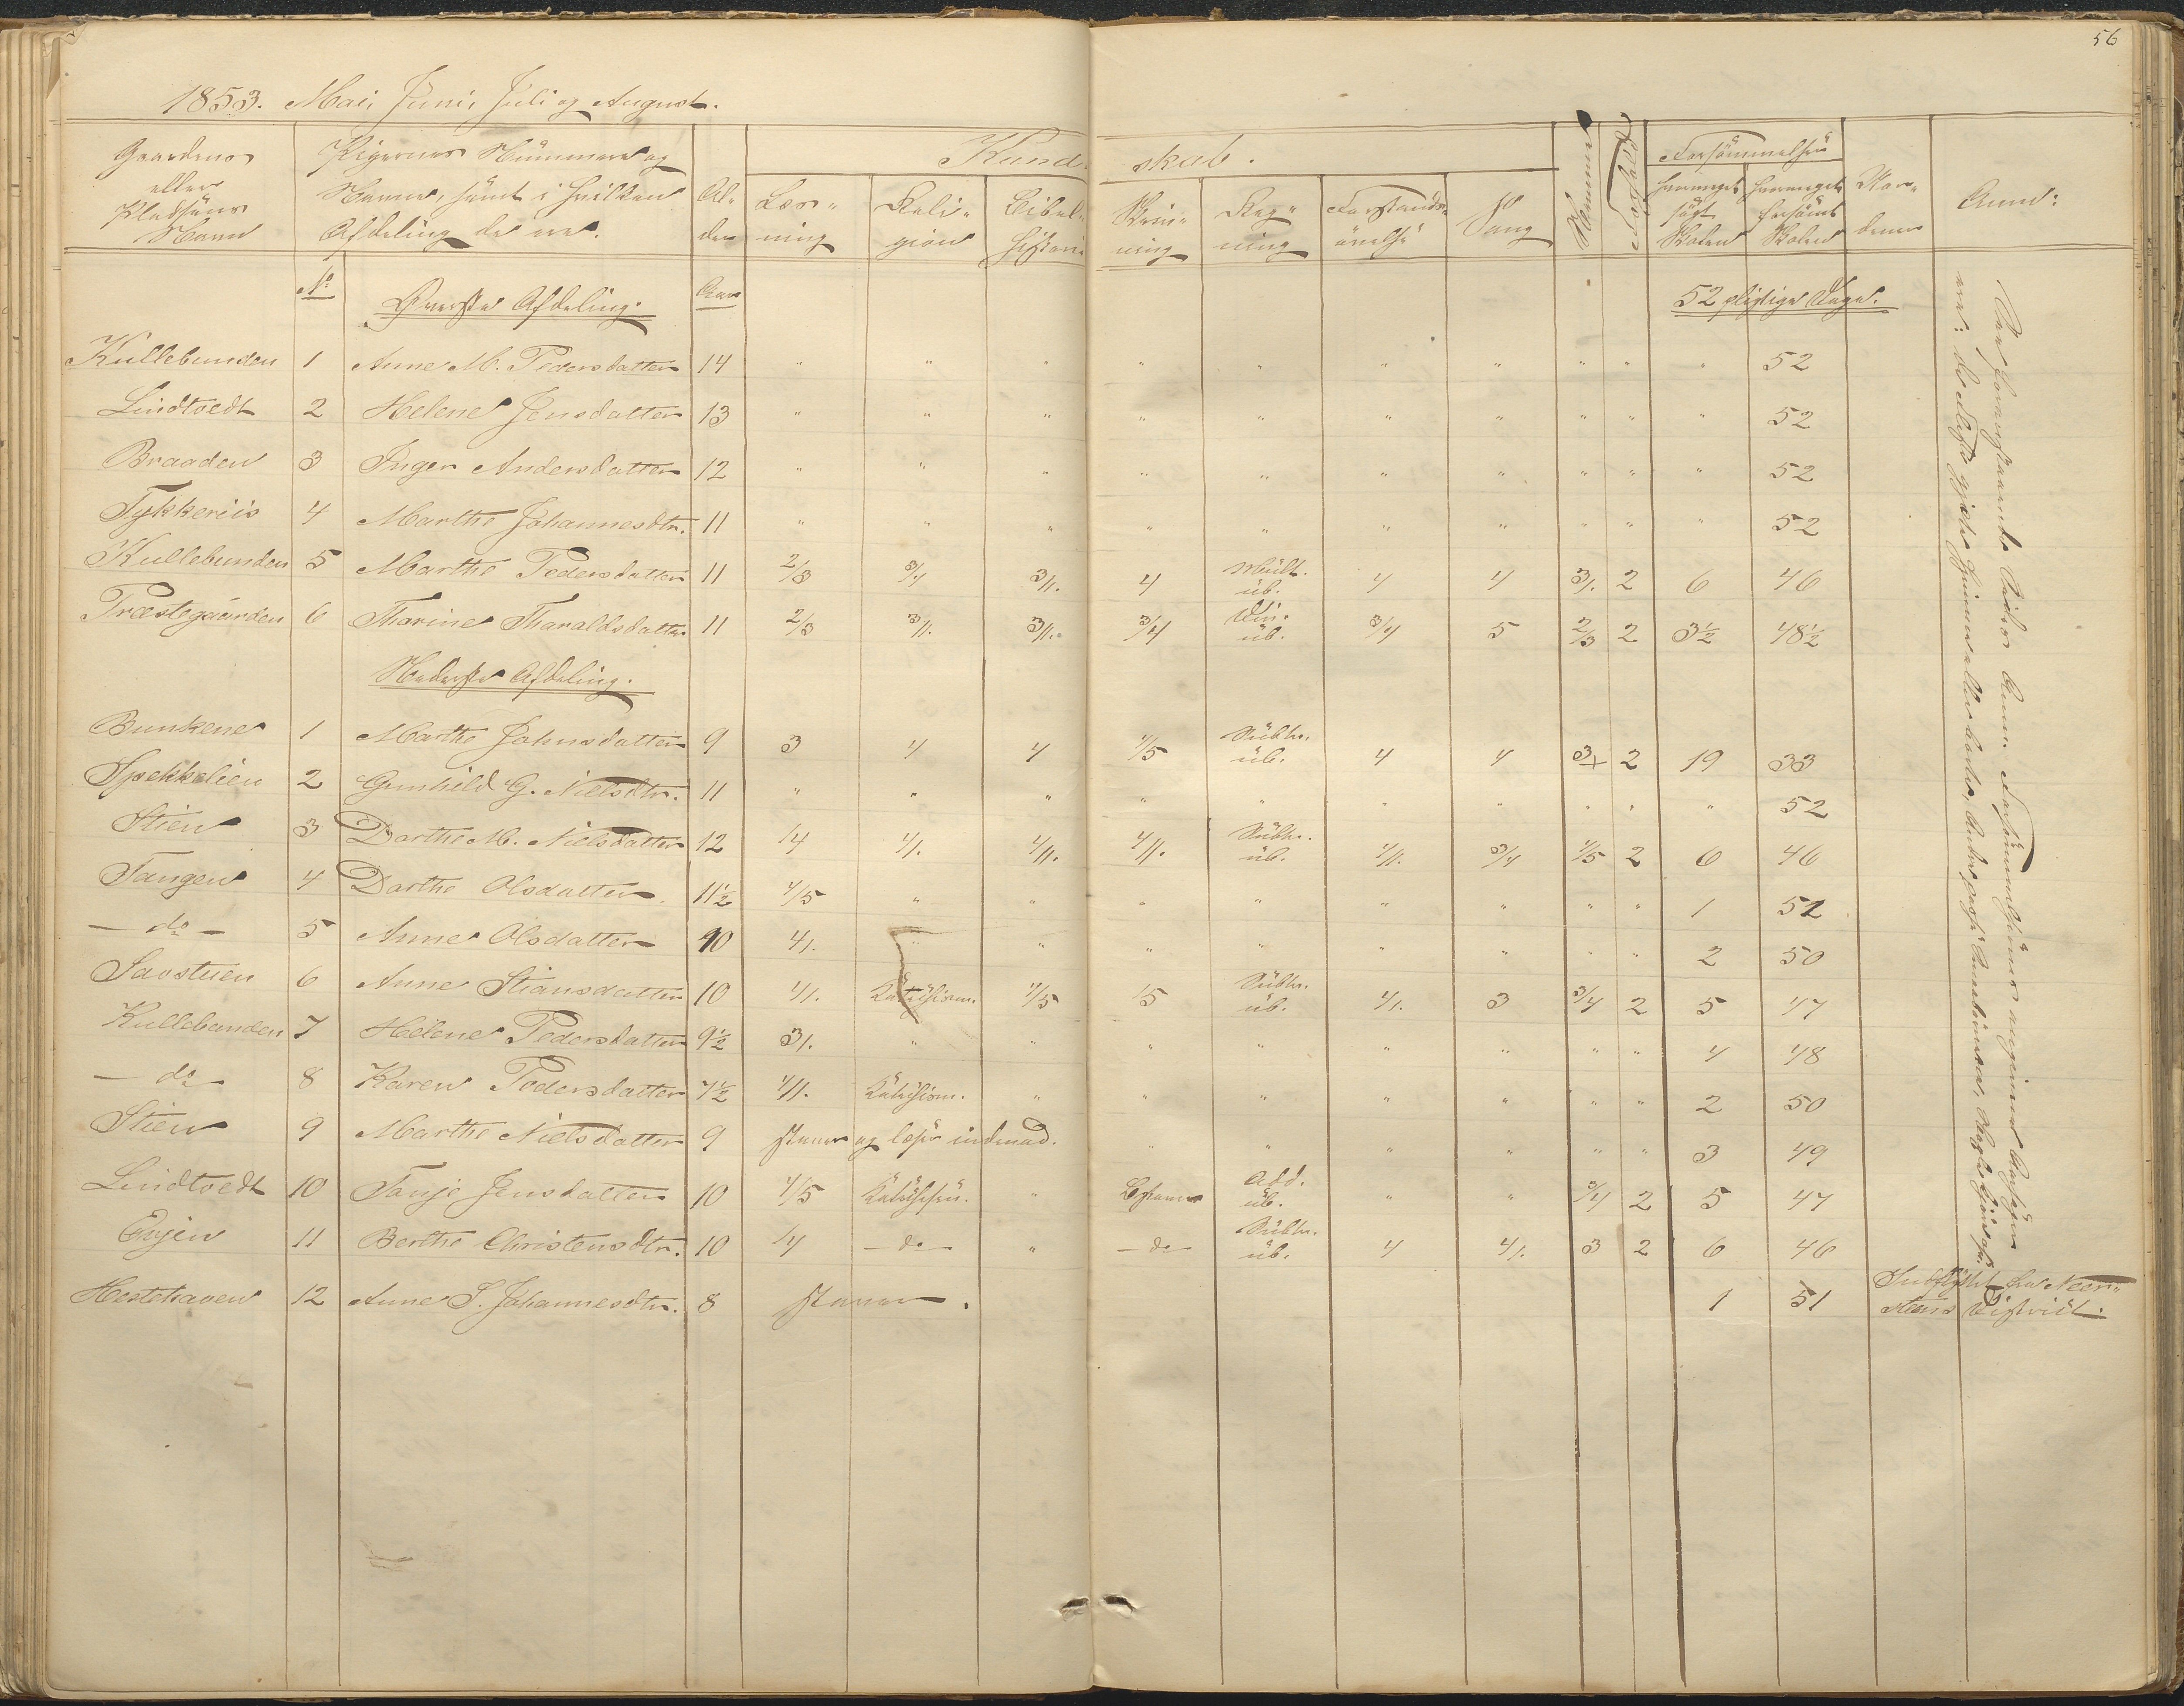 56
1853. Mai, Juni, Juli og August.
Gaardens eller Pladsens Navn
Pigernes Nummer og Navne, samt i hvilken Afdeling de ere.
Alder
Kundskab.
Læsning
Religion
Bibelhistorie
Skrivning
Regning
Forstandsøvelse
Sang
Nemme
Forhold
Forsømmelser
hvormeget søgt Skolen
hvormeget forsømt Skolen
Anm:
No Øverste Afdeling. Aar
52 pligtige Dage.
Kullebunden 1 Anne M. Pedersdatter 14 " " " " " " " " " " 52
Lindtvedt 2 Helene Jensdatter 13 " " " " " " " " " " 52
Braaden 3 Inger Andersdatter 12 " " " " " " " " " " 52
Tykkeriis 4 Marthe Johannesdtr. 11 " " " " " " " " " " 52
Kullebunden 5 Marthe Pedersdatter 11 2/3 3/4 3/1. 4 Mult. üb. 4 4 3/. 2 6 46
Præstegaarden 6 Tharine Tharaldsdatter 11 2/3 3/1. 3/1. 3/4 Div. üb. 3/4 5 2/3 2 3½ 48½
Nederste Afdeling.
Bunkene 1 Marthe Johnsdatter 9 3 4 4 4/5 Subtr. üb. 4 4 3/+ 2 19 33
Spekkelien 2 Gunhild G. Nielsdtr. 11 " " " " " " " " " " 52
Stien 3 Dorthe M. Nielsdatter 12 /4 4/. 4/1. 4/1. Subtr. üb. 4/1. 3/4 4/5 2 6 46
Tangen 4 Dorthe Olsdatter 11½ 4/5 " " " " " " " " 1 51
— do — 5 Anne Olsdatter 10 4/. " " " " " " " " 2 50
Savstuen 6 Anne Stiansdatter 10 4/. Katechism. 4/5 /5 Subtr. üb. 4/. 3 3/4 2 5 47
Kullebunden 7 Helene Pedersdatter 9½ 3/. " " " " " " " " 4 48
— do — 8 Karen Pedersdatter 7½ 4/1. Katechism. " " " " " " " 2 50
Stien 9 Marthe Nielsdatter 9 staver og læser indenad. " " " " " " 3 49
Lindtvedt 10 Tanje Jensdatter 10 4/5 " Add. üb. " " 3/4 2 5 47
Enjen 11 Berthe Christensdtr. 10 /4 — do — " — do — Subtr. üb. 4 4/. 3 2 6 46
Hestehaven 12 Anne S. Johannesdtr. 8 staver. 1 51 Indflyttet fra Neer-